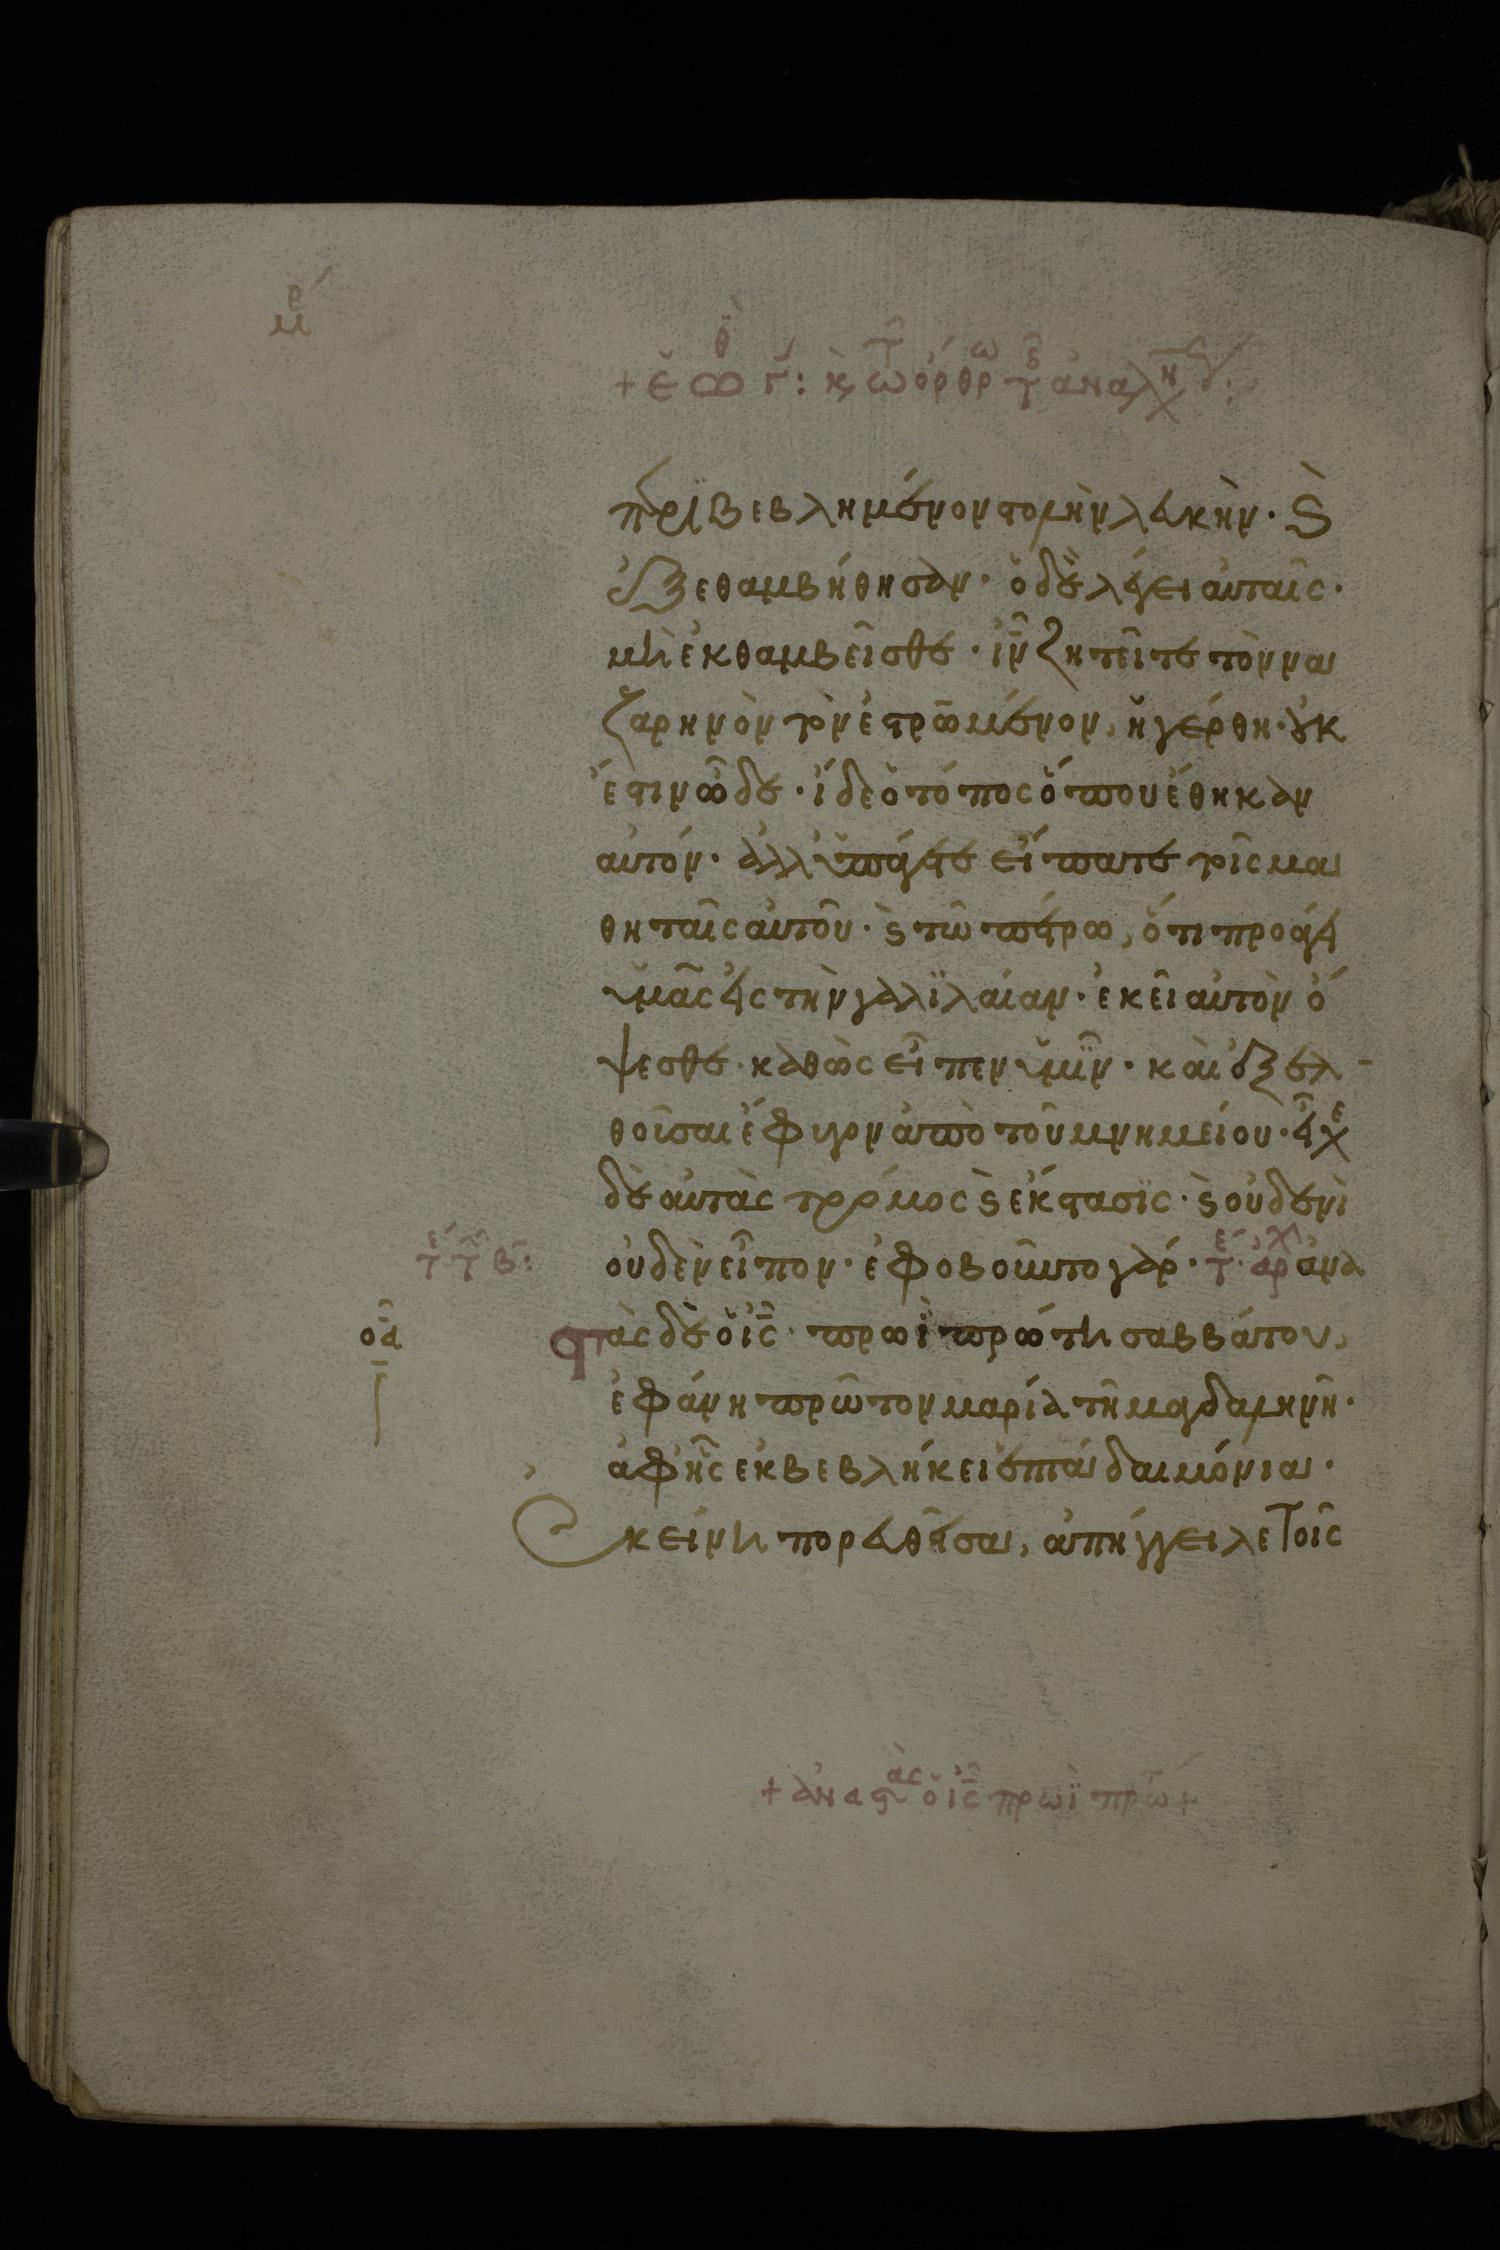 περιβεβλημένον στολὴν λευκὴν· καὶ
ἐξεθαμβήθησαν· ὁ δὲ λέγει αὐταῖς·
μὴ ἐκθαμβεῖσθε· ἰν ζητεῖτε τὸν να
ζαρηνὸν τὸν ἐστρωμένον, ἠγέρθη· οὐκ
ἔστιν ὧδε· ἴδε ὁ τόπος ὅπου ἔθηκαν
αὐτόν· ἀλλ ὑπάγετε εἴπατε τοῖς μα
θηταῖς αὐτοῦ· καὶ τῶ πέτρω, ὅτι προάγει
ὑμᾶς εἰς τὴν γαλιλαίαν· ἐκεῖ αὐτὸν ὄ
ψεσθε· καθὼς εἶπεν ὑμῖν· καὶ ἐξελ
θοῦσαι ἔφυγον ἀπὸ τοῦ μνημείου· εἶχε
δὲ αὐτὰς τρόμος καὶ ἔκστασις· καὶ οὐδενὶ
οὐδὲν εἶπον· ἐφοβοῦντο γάρ· τε αρχ ἀνα
στὰς δὲ ὁ ις· πρωῒ πρώτη σαββάτου,
ἐφάνη πρῶτον μαρία τῆ μαγδαληνῆ·
ἀφ ἧς ἐκβεβλήκει ἑπτὰ δαιμόνια·
Ἐκείνη πορευθεῖσα, ἀπήγγειλε τοῖς
+ ἀναστὰς ὁ ις πρωῒ πρώτ